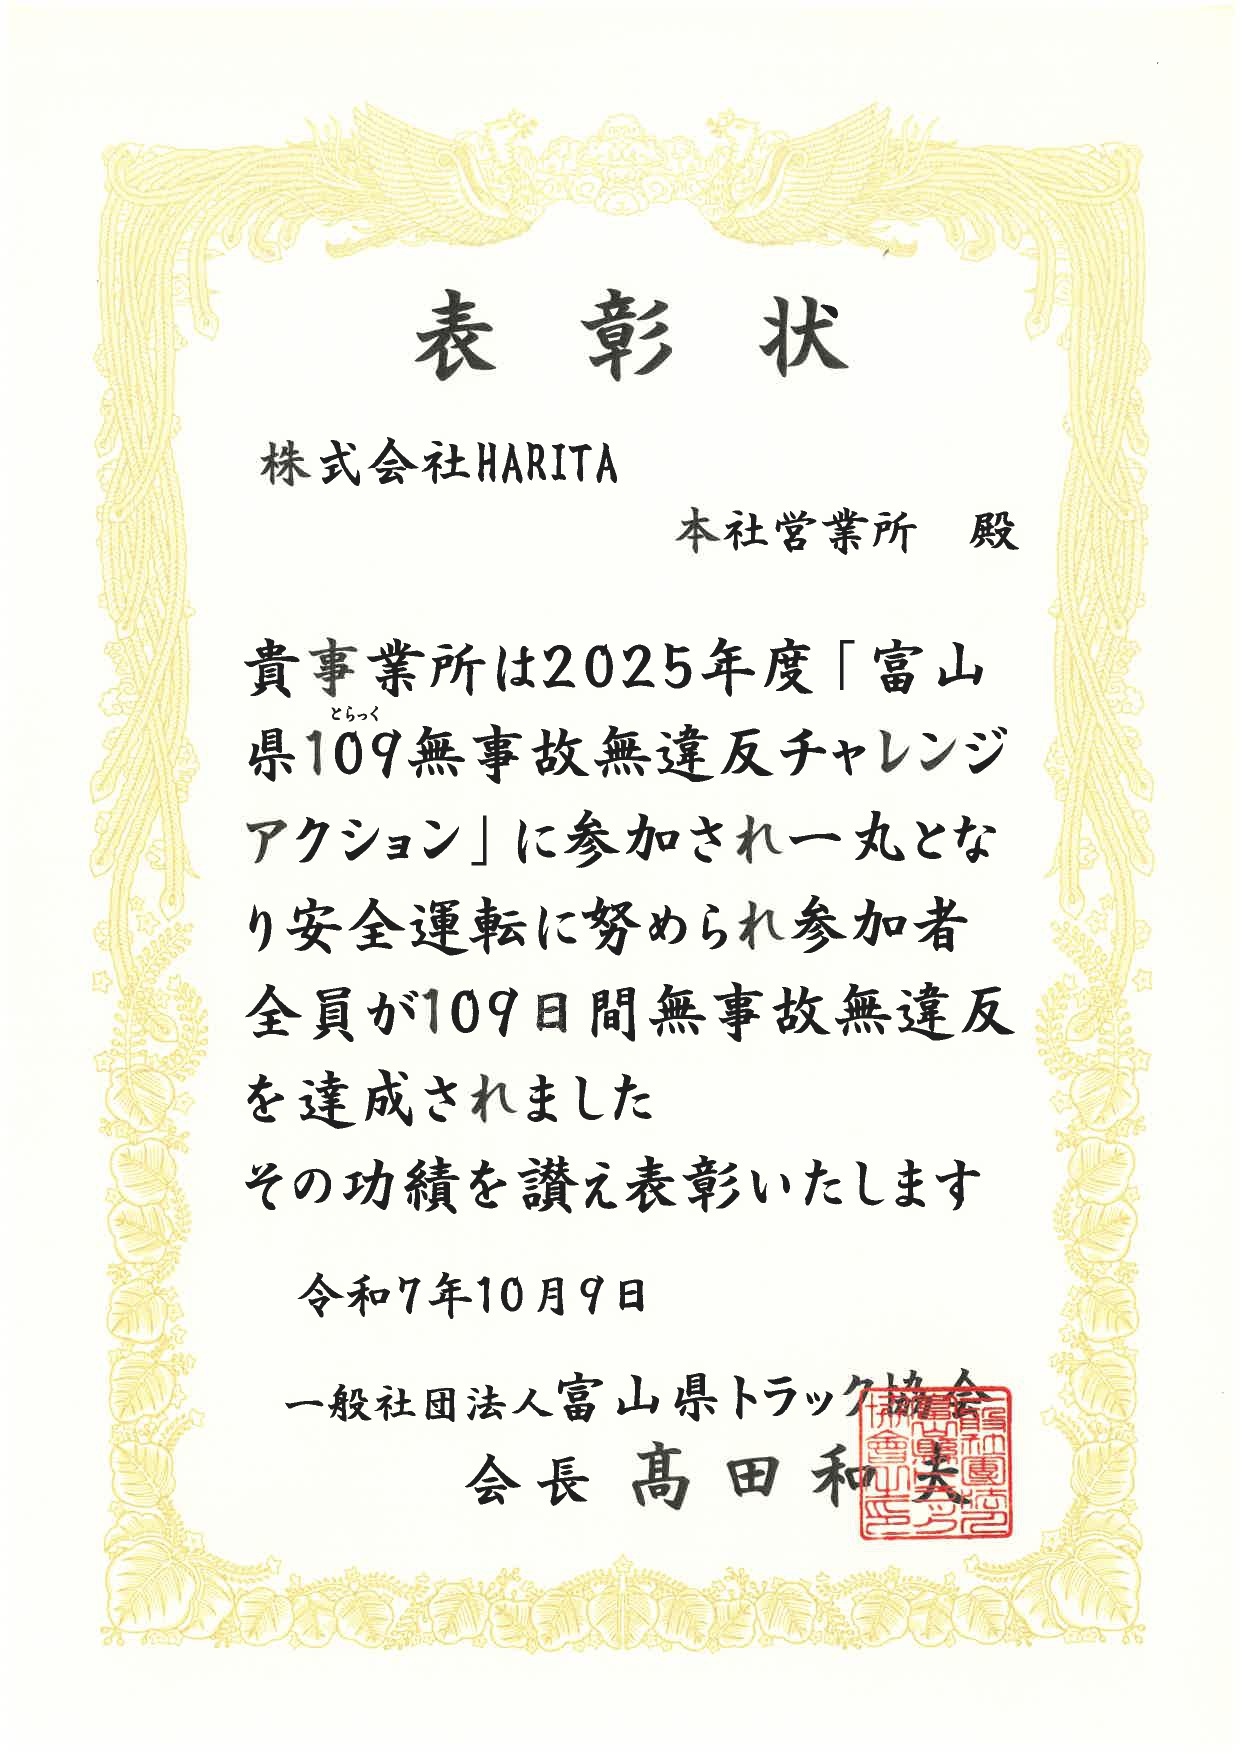 表彰状
株式会社HARITA
本社営業所 殿
貴事業所は2025年度「富山
とらっく
県109無事故無違反チャレンジ
アクション」に参加され一丸とな
り安全運転に努められ参加者
全員が109日間無事故無違反
を達成されました
その功績を讃え表彰いたします
令和7年10月9日
一般社団法人富山県トラック協会
会長 髙田和夫